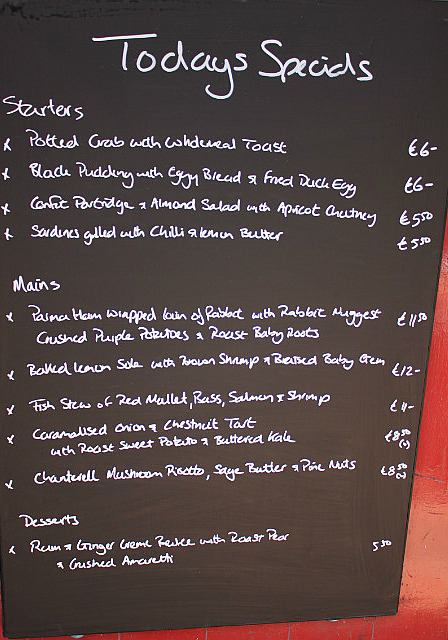 Todays Specials
Starters
x Potted Crab with Wholemeal Toast £6-
x Black Pudding with Eggy Bread & Fried Duck Egg £6-
x Confit Partridge & Almond Salad with Apricot Chutney £5.50
x Sardines grilled with Chilli & lemon Butter £5.50
Mains
x Parma Ham wrapped loin of Rabbit with Rabbit Nuggest £11.50
Crushed Purple Potatoes & Roast Baby Roots
x Baked lemon Sole with Brown Shrimp & Braised Baby Gem £12-
x Fish Stew of Red Mullet, Bass, Salmon & Shrimp £11-
x Caramalised Onion & Chestnut Tart £8.50
with Roast Sweet Potato & Buttered Kale (v)
x Chanterell Mushroom Risotto, Sage Butter & Pine Nuts £8.50 (v)
Desserts
x Rum & Ginger Creme Brulee with Roast Pear 5.50
& Crushed Amaretti